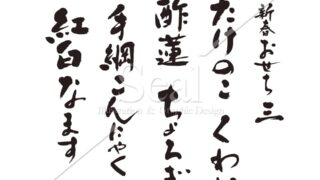 新春おせち三
たけのこ くわい
酢蓮 ちょろぎ
手綱こんにゃく
紅白なます
Seal
Illustration & Graphic Design